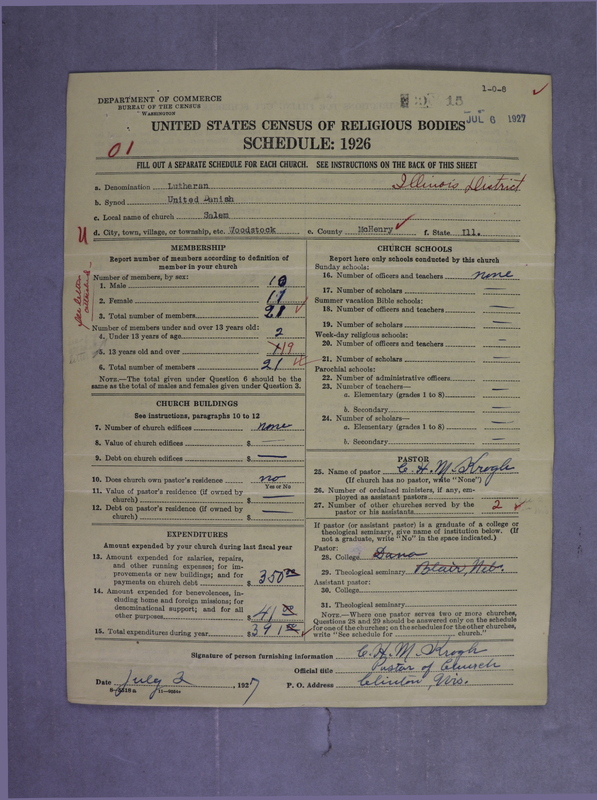 1-0-6
DEPARTMENT OF COMMERCE
BUREAU OF THE CENSUS
WASHINGTON
15
JUL 6 1927
UNITED STATES CENSUS OF RELIGIOUS BODIES
SCHEDULE: 1926
01
FILL OUT A SEPARATE SCHEDULE FOR EACH CHURCH. SEE INSTRUCTIONS ON THE BACK OF THIS SHEET
a. Denomination Lutheran
Illinois District
b. Synod United Danish
c. Local name of church Salem
d. City, town, village, or township, etc. Woodstock e. County McHenry f. State Ill.
U
See letter attached
MEMBERSHIP
Report number of members according to definition of
member in your church
Number of members, by sex:
1. Male 10
2. Female 11
3. Total number of members 21
Number of members under and over 13 years old:
4. Under 13 years of age 2
5. 13 years old and over 19
6. Total number of members 21
NOTE.—The total given under Question 6 should be the
same as the total of males and females given under Question 3.
CHURCH BUILDINGS
See instructions, paragraphs 10 to 12
7. Number of church edifices none
8. Value of church edifices $ —
9. Debt on church edifices $ —
10. Does church own pastor's residence? no
Yes or No
11. Value of pastor's residence (if owned by
church) $ —
12. Debt on pastor's residence (if owned by
church) $ —
EXPENDITURES
Amount expended by your church during last fiscal year
13. Amount expended for salaries, repairs,
and other running expenses; for im-
provements or new buildings; and for
payments on church debt $ 350 00
14. Amount expended for benevolences, in-
cluding home and foreign missions; for
denominational support; and for all
other purposes $ 41 00
15. Total expenditures during year $ 391 00
CHURCH SCHOOLS
Report here only schools conducted by this church
Sunday schools:
16. Number of officers and teachers none
17. Number of scholars —
Summer vacation Bible schools:
18. Number of officers and teachers —
19. Number of scholars —
Week-day religious schools:
20. Number of officers and teachers —
21. Number of scholars —
Parochial schools:
22. Number of administrative officers —
23. Number of teachers—
a. Elementary (grades 1 to 8) —
b. Secondary —
24. Number of scholars—
a. Elementary (grades 1 to 8) —
b. Secondary —
PASTOR
25. Name of pastor C. H. M. Krogh
(If church has no pastor, write "None")
26. Number of ordained ministers, if any, em-
ployed as assistant pastors —
27. Number of other churches served by the
pastor or his assistants 2
If pastor (or assistant pastor) is a graduate of a college or
theological seminary, give name of institution below. (If
not a graduate, write "No" in the space indicated.)
Pastor:
28. College Dana
29. Theological seminary Blair, Neb.
Assistant pastor:
30. College
31. Theological seminary
NOTE.—Where one pastor serves two or more churches,
Questions 28 and 29 should be answered only on the schedule
for one of the churches; on the schedules for the other churches,
write "See schedule for church."
Signature of person furnishing information C. H. M. Krogh
Official title Pastor of Church
Date July 2, 1927 P. O. Address Clinton, Wis.